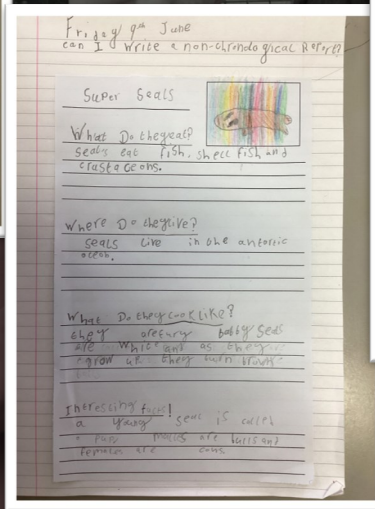 Friday 9th June
can I write a non-chronological Report?
Super Seals
What Do they eat?
seals eat fish, shell fish and
crustaceons.
Where Do they live?
seals live in the antortic
ocean.
What Do they look like?
they are fury babby seals
are white and as they
grow up they turn brown
Intressing facts!
a young seal is called
a pup. males are bulls and
females are cows